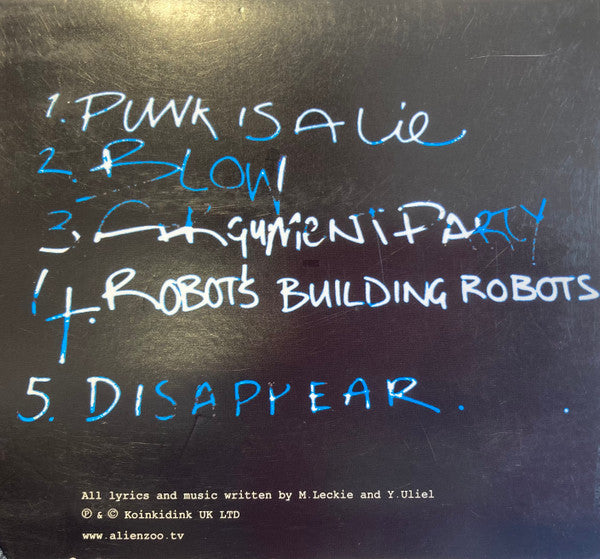 1. PUNK IS A Lie
2. BLOW
3. ARgUMENT PARTY
4. ROBOTS BUILDING ROBOTS
5. DISAPPEAR.
All lyrics and music written by M.Leckie and Y.Uliel
℗ & © Koinkidink UK LTD
www.alienzoo.tv